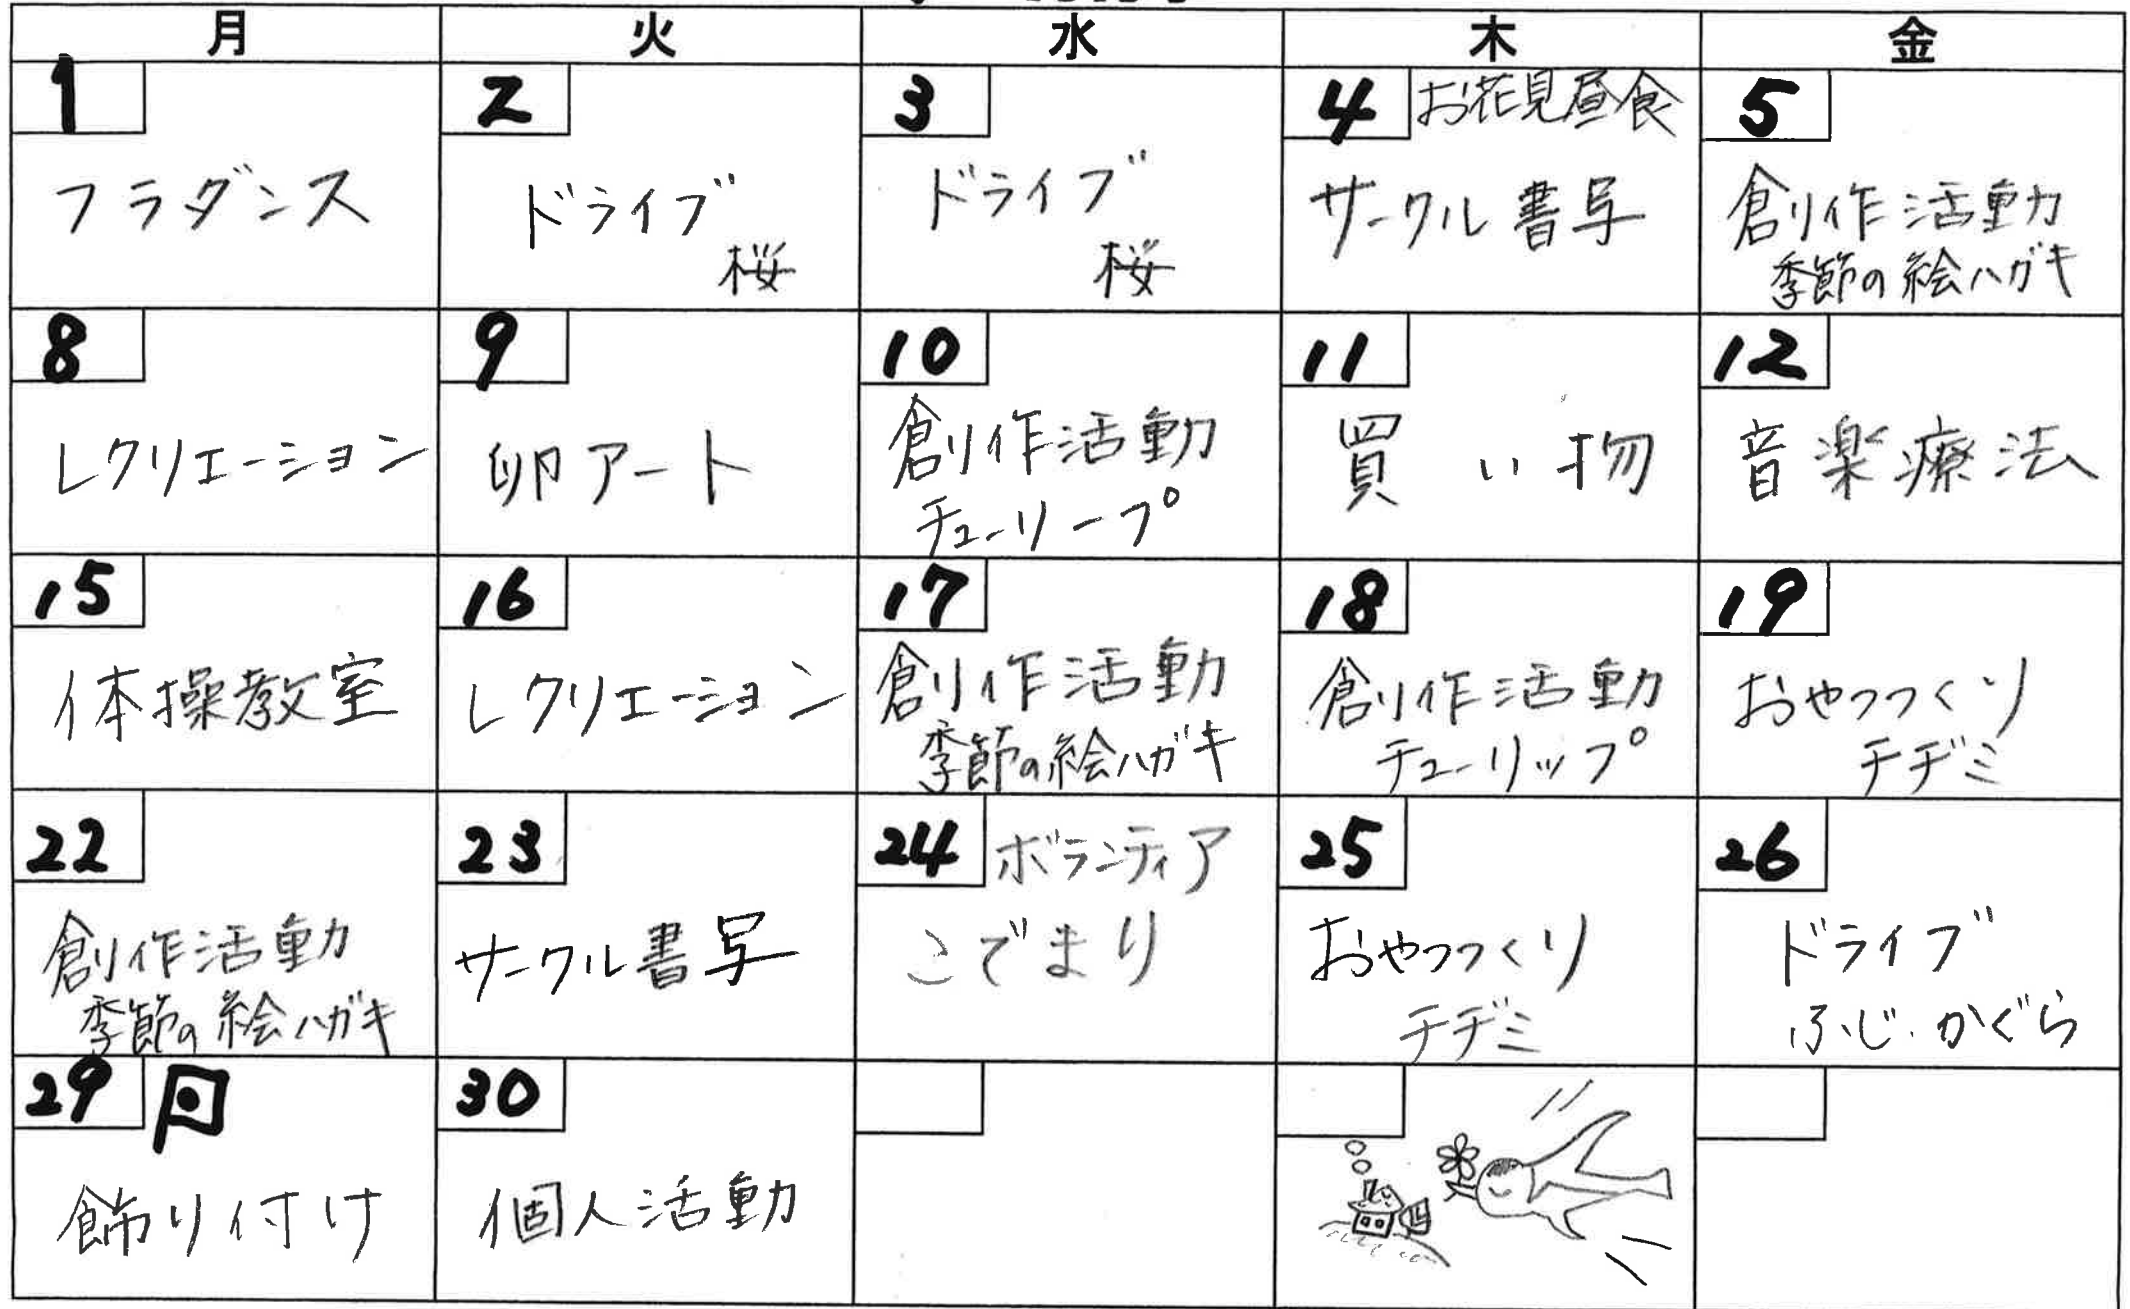 月 火 水 木 金
1
フラダンス
2
ドライブ
桜
3
ドライブ
桜
4 お花見昼食
サークル書写
5
創作活動
季節の絵ハガキ
8
レクリエーション
9
卵アート
10
創作活動
チューリープ
11
買い物
12
音楽療法
15
体操教室
16
レクリエーション
17
創作活動
季節の絵ハガキ
18
創作活動
チューリップ
19
おやつつくり
チヂミ
22
創作活動
季節の絵ハガキ
23
サークル書写
24 ボランティア
こでまり
25
おやつつくり
チヂミ
26
ドライブ
ふじ・かぐら
29
飾り付け
30
個人活動